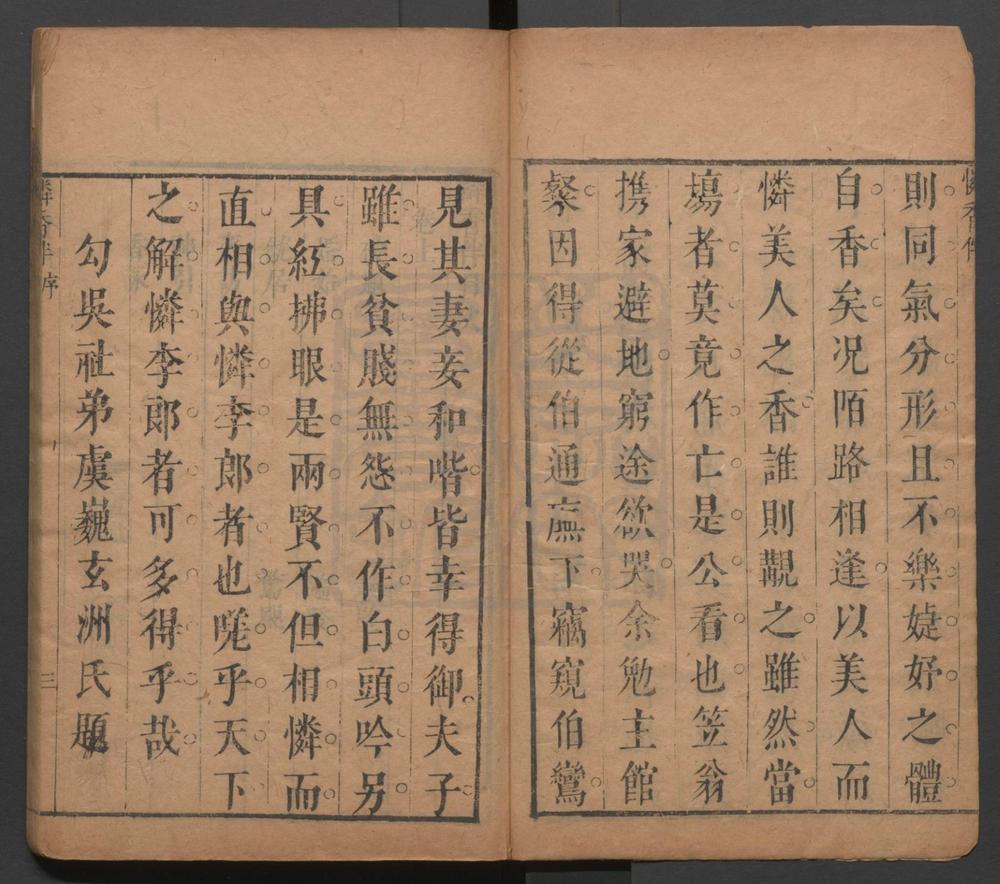 則同氣分形且不樂婕妤之體
自香矣况陌路相逢以美人而
憐美人之香誰則覯之雖然當
塲者莫竟作亡是公看也笠翁
携家避地窮途欲哭余勉主館
粲因得從伯通廡下竊窺伯鸞
見其妻妾和喈皆幸得御夫子
雖長貧賤無怨不作白頭吟另
具紅拂眼是兩賢不但相憐而
直相與憐李郎者也嗟乎天下
之解憐李郎者可多得乎哉
勾吳社弟虞巍玄洲氏題
憐香伴序
三